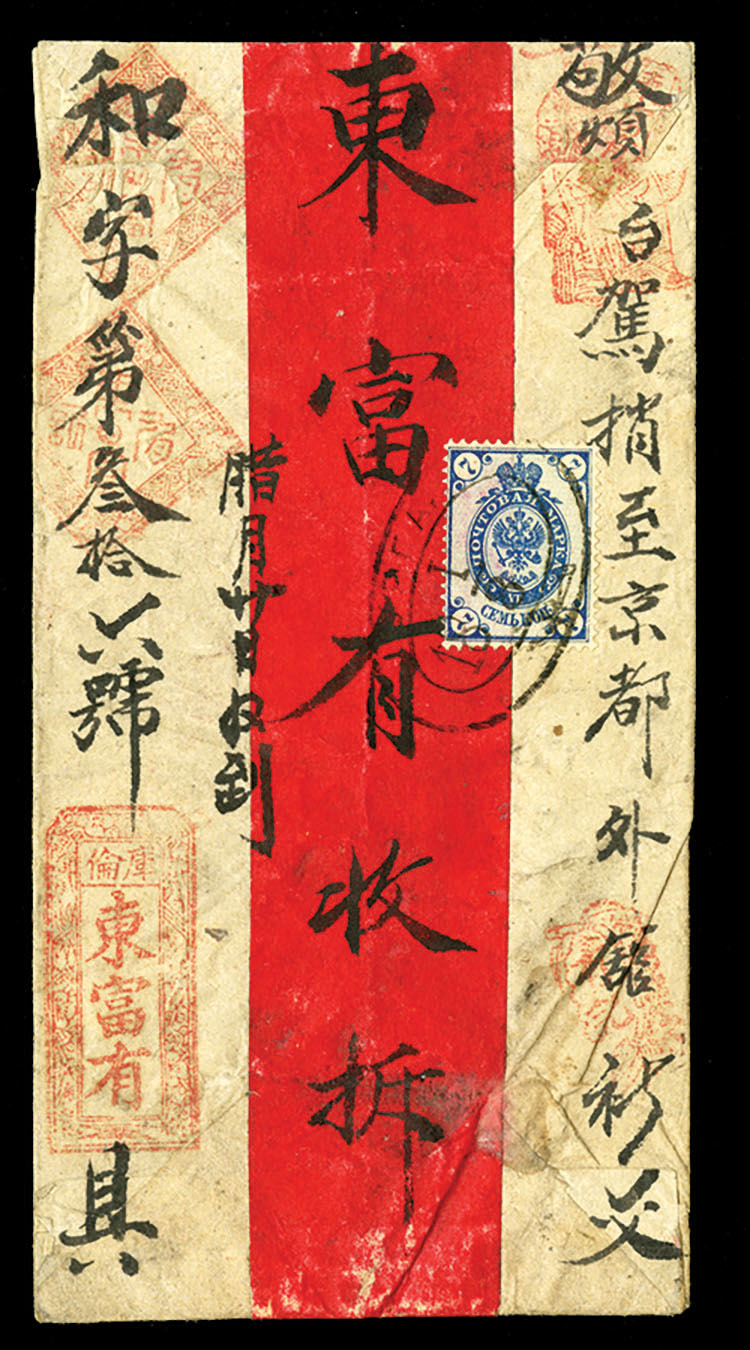 敬煩
台駕捎至京都外舘祈交
東富有收拆
腊月廿日收到
和字第叁拾六號
庫倫
東富有
具
7 7
ПОЧТОВАЯ МАРКА
СЕМЬ КОП.
7 7